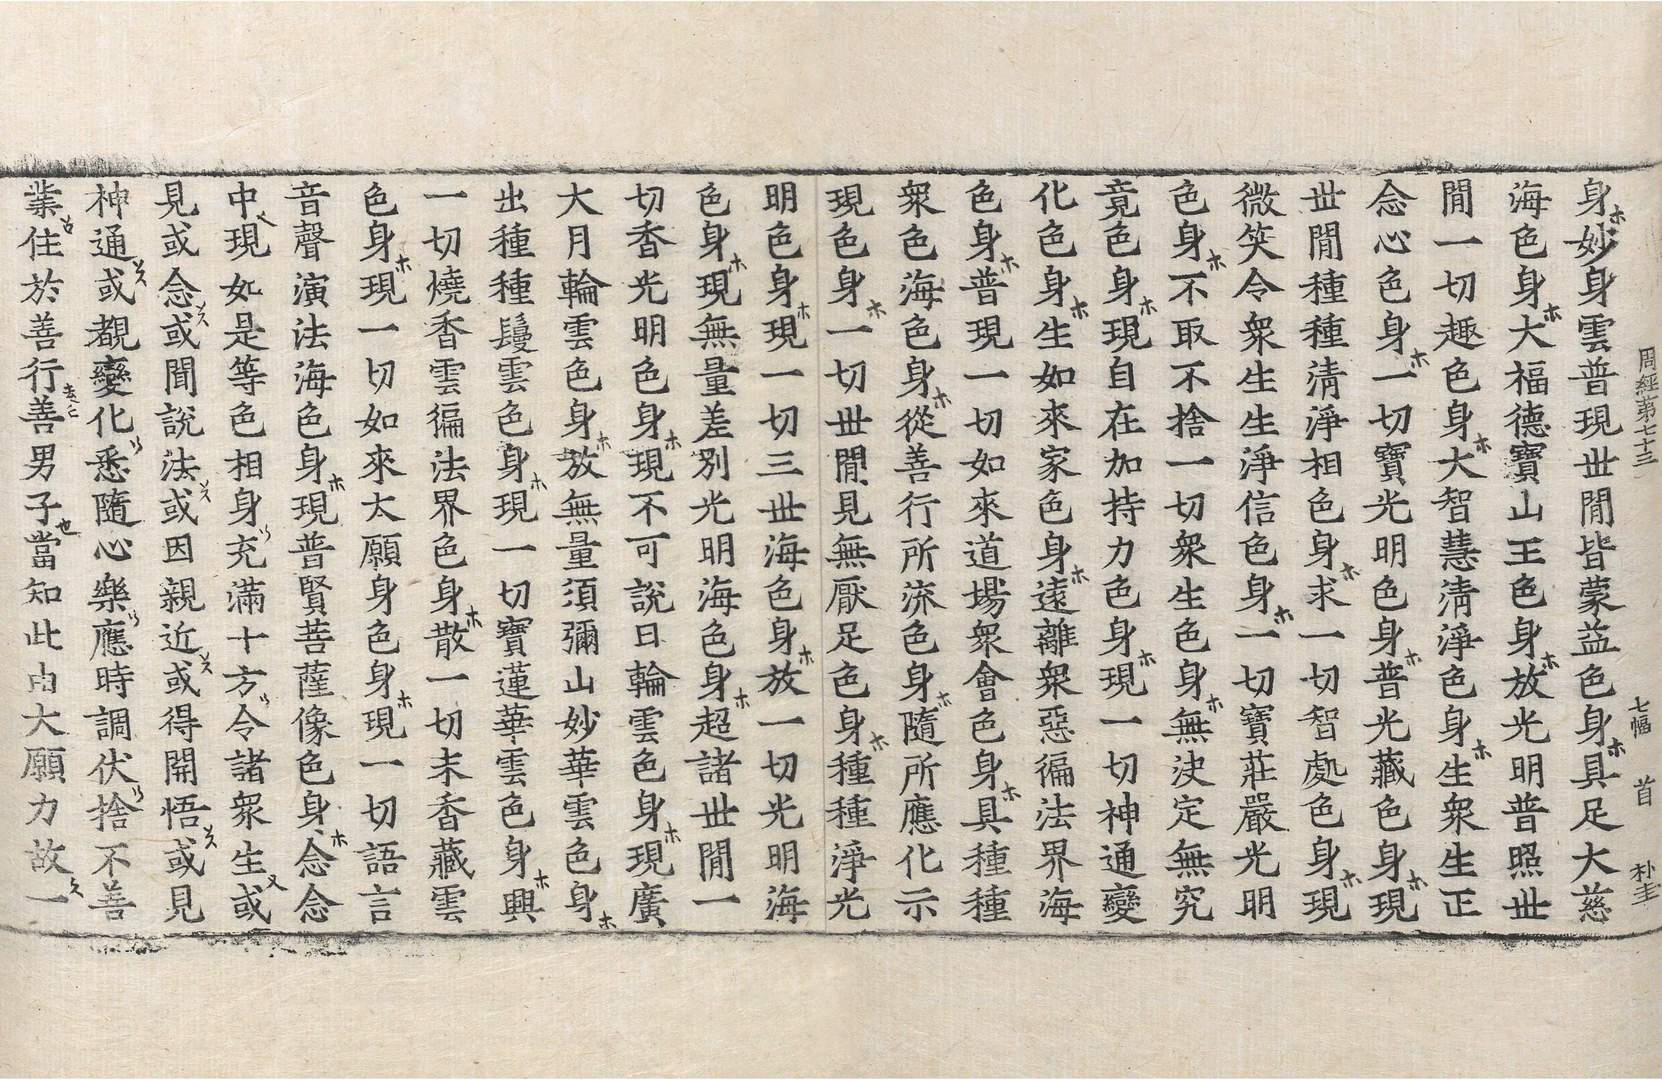 周經第七十三 七幅 首 朴圭
身妙身雲普現世閒皆蒙益色身具足大慈
海色身大福德寶山王色身放光明普照世
閒一切趣色身大智慧清淨色身生衆生正
念心色身一切寶光明色身普光藏色身現
世閒種種清淨相色身求一切智處色身現
微笑令衆生生淨信色身一切寶莊嚴光明
色身不取不捨一切衆生色身無決定無究
竟色身現自在加持力色身現一切神通變
化色身生如來家色身遠離衆惡徧法界海
色身普現一切如來道場衆會色身具種種
衆色海色身從善行所流色身隨所應化示
現色身一切世閒見無厭足色身種種淨光
明色身現一切三世海色身放一切光明海
色身現無量差別光明海色身超諸世閒一
切香光明色身現不可說日輪雲色身現廣
大月輪雲色身放無量須彌山妙華雲色身
出種種鬘雲色身現一切寶蓮華雲色身興
一切燒香雲徧法界色身散一切末香藏雲
色身現一切如來大願身色身現一切語言
音聲演法海色身現普賢菩薩像色身念念
中現如是等色相身充滿十方令諸衆生或
見或念或聞說法或因親近或得開悟或見
神通或覩變化悉隨心樂應時調伏捨不善
業住於善行善男子當知此由大願力故一